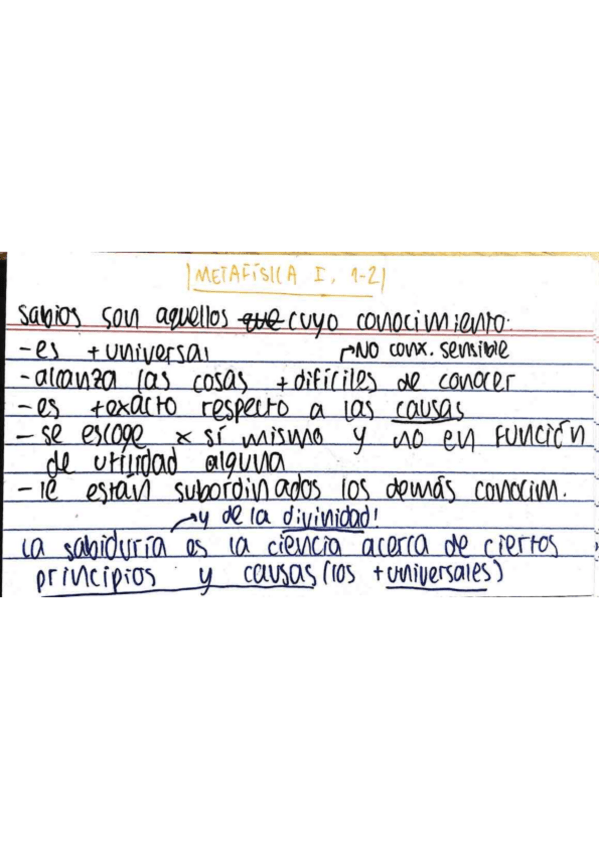 METAFÍSICA I, 1-2
sabios son aquellos que cuyo conocimiento:
-es +universal
↱NO conx. sensible
-alcanza las cosas +difíciles de conocer
-es +exacto respecto a las causas
-se escoge x sí mismo y no en FUNCIÓN
de utilidad alguna
-le están subordinados los demás conocim.
→y de la divinidad!
La sabiduría es la ciencia acerca de ciertos
principios y causas (los +universales)